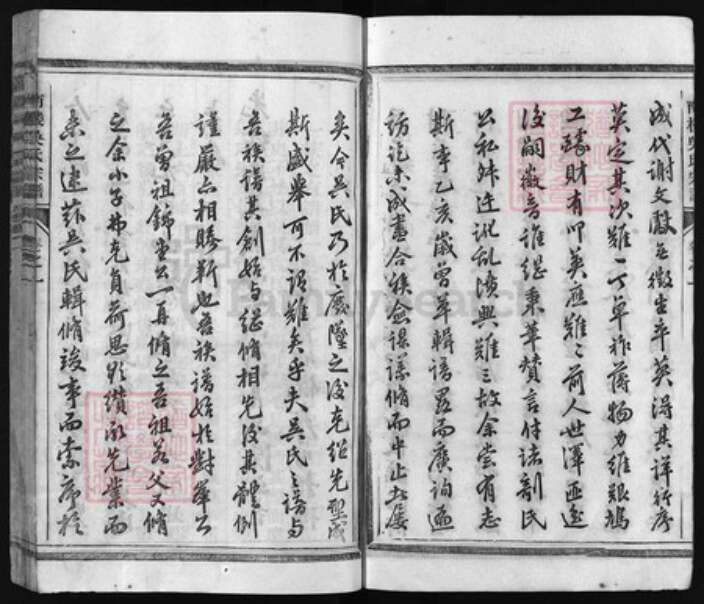 成代謝文獻無徵生卒莫得其詳行序
莫定其次難一丁單祚薄物力維艱鳩
工醵財有叩莫應難二前人世澤匪遙
後嗣徽音誰繼秉筆贊言付諸剞氏
公私舛迕訛亂潰興難三故余嘗有志
斯事乙亥歲曾草輯譜畧而廣詢遍
訪迄未成書合族僉謀議脩而中止者屢
矣今吳氏乃於廢墜之後克紹先型成
斯盛舉可不謂難矣乎夫吳氏之譜與
吾族譜其創始與繼脩相先後其體例
謹嚴亦相勝靳也吾族譜始於對峯公
吾曾祖錦堂公一再脩之吾祖若父又脩
之余小子弗克負荷思欲纘承先業而
未之逮茲吳氏輯脩竣事而索序於
FamilySearch